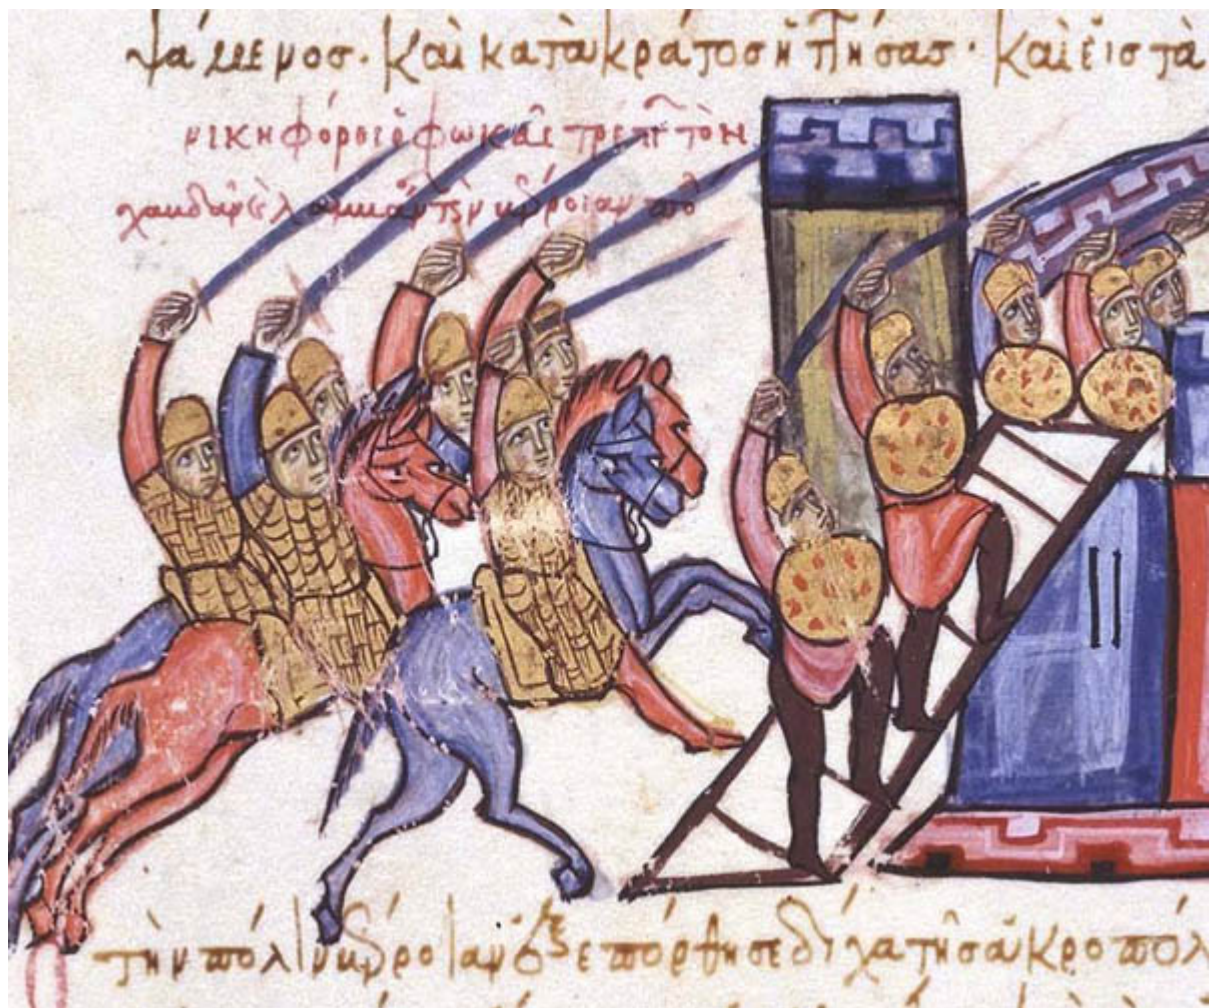 ψάμενος· καὶ κατὰ κράτος ἡττήσας· καὶ εἰς τὰ
νικηφόρος ὁ φωκᾶς τρέπει τὸν
τὴν βέρροιαν
τὴν πόλιν βέρροιαν ἐξεπόρθησε δίχα τῆς ἀκροπόλ